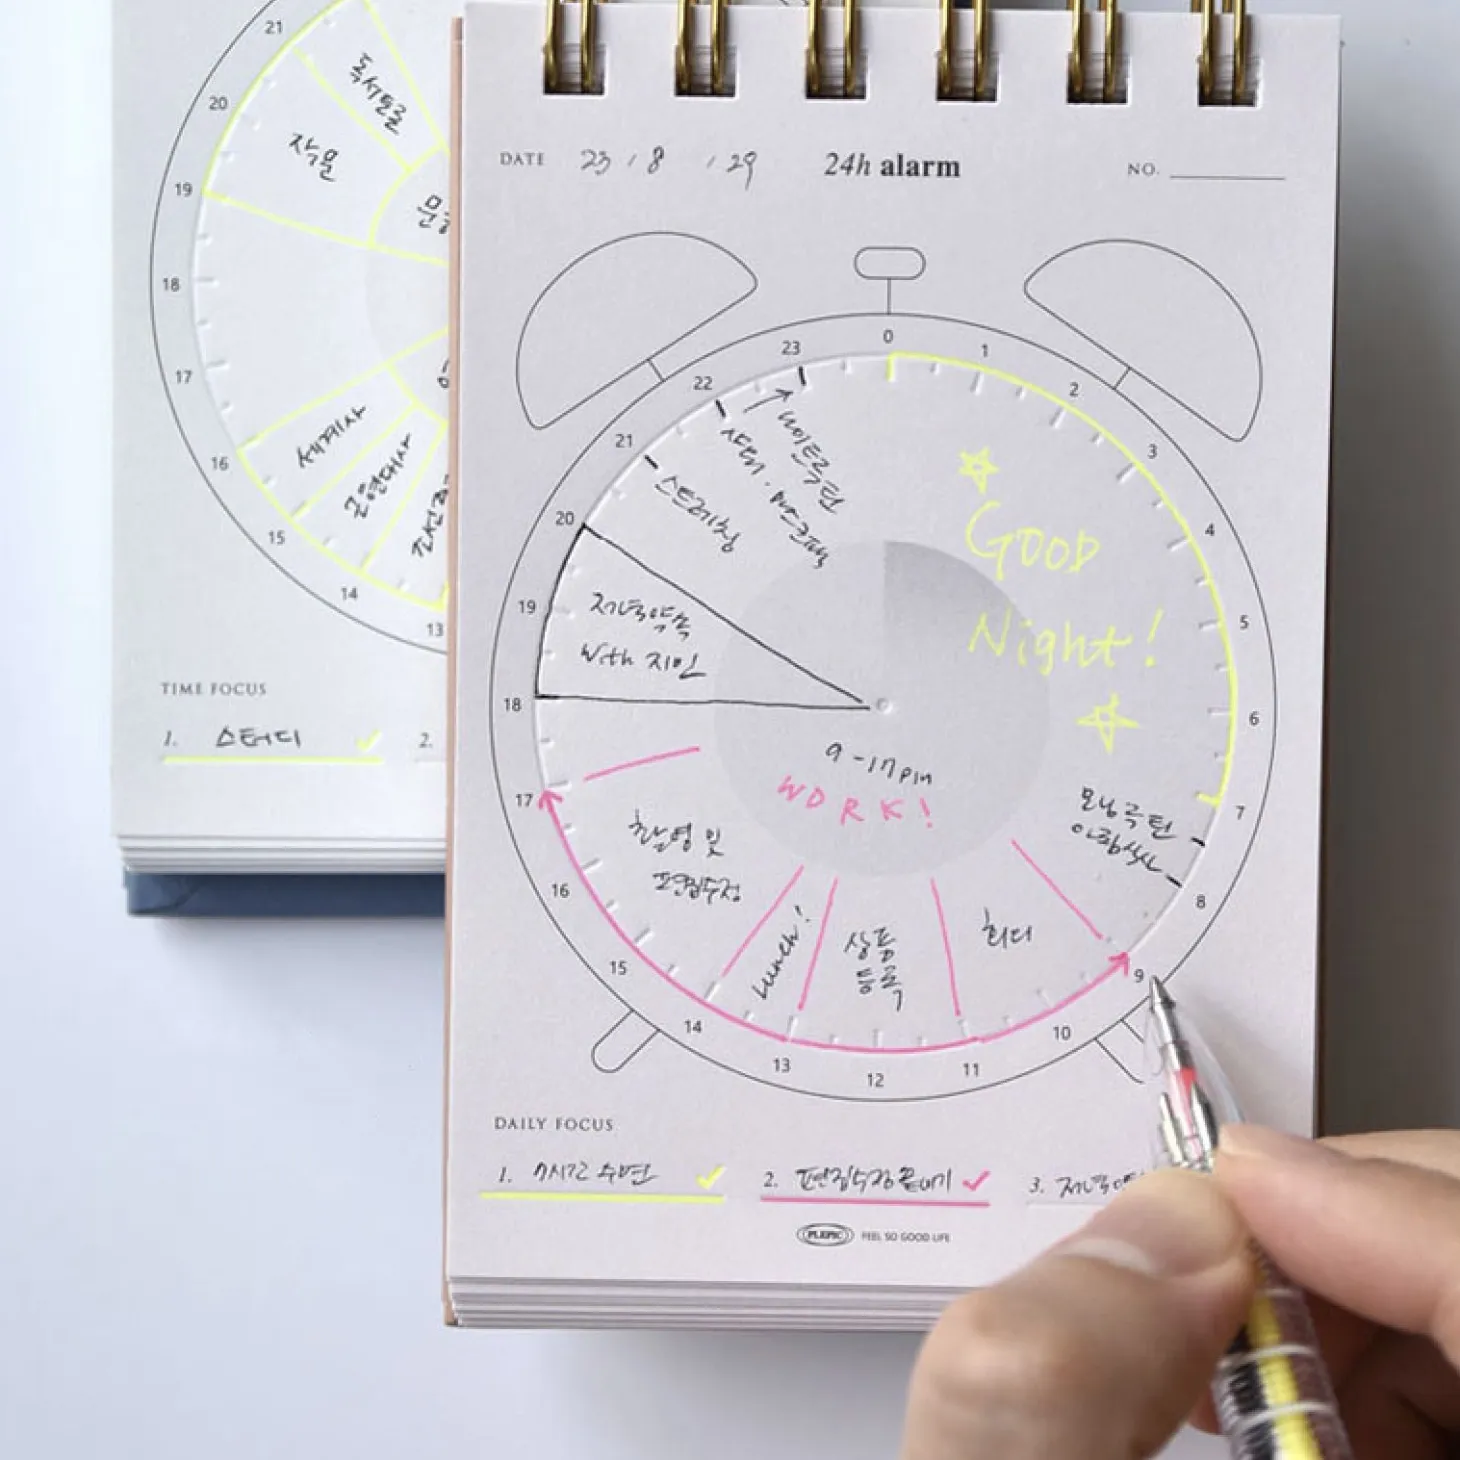 21
20
19
18
17
16
15
14
13
독서토론
작문
세계사
근현대사
TIME FOCUS
1. 스터디
2.
DATE 23 / 8 / 29
24h alarm
NO.
0
1
2
3
4
5
6
7
8
9
10
11
12
13
14
15
16
17
18
19
20
21
22
23
GOOD
Night!
모닝루틴
아침식사
회의
상품
등록
Lunch!
촬영 및
편집수정
9-17pm
WORK!
저녁약속
With 지민
스트레칭
샤워.
나이트루틴
DAILY FOCUS
1. 7시간 수면
2. 편집수정 끝내기
3.
PLEPIC FEEL SO GOOD LIFE